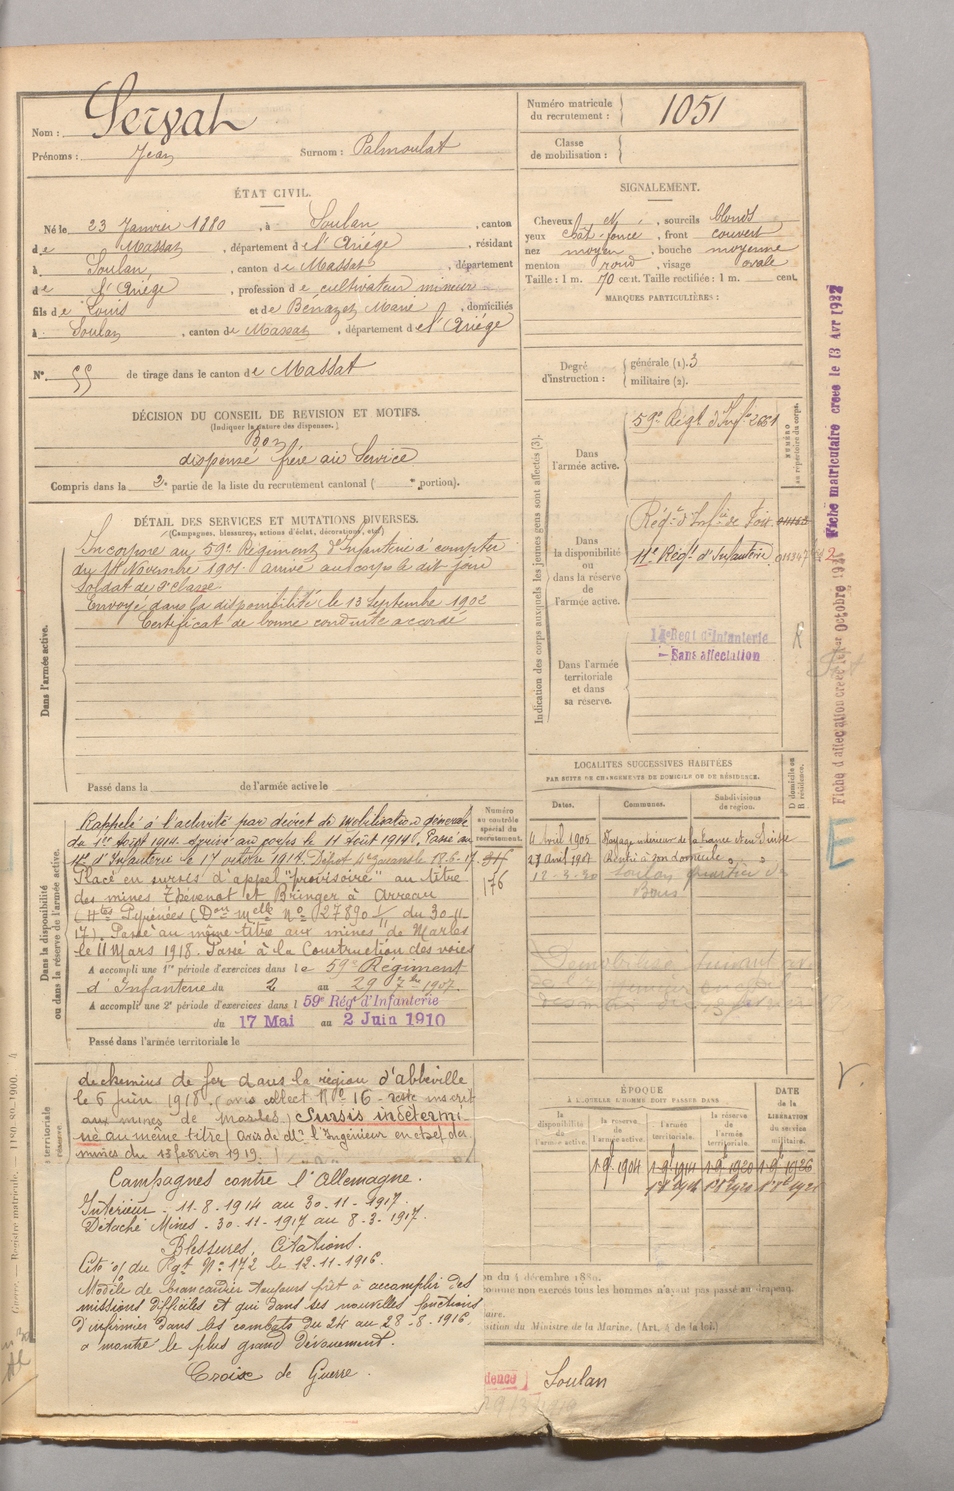 Nom : Servat
Prénoms : Jean Surnom : Palmoulat
Numéro matricule du recrutement : 1051
Classe de mobilisation :
ÉTAT CIVIL.
Né le 23 Janvier 1880, à Soulan, canton
de Massat, département de l'Ariège, résidant
à Soulan, canton de Massat, département
de l'Ariège, profession de cultivateur mineur
fils de Louis et de Bénazet Marie, domiciliés
à Soulan, canton de Massat, département de l'Ariége
N° 55 de tirage dans le canton de Massat
DÉCISION DU CONSEIL DE REVISION ET MOTIFS.
(Indiquer la nature des dispenses.)
Bon
dispensé frère au Service
Compris dans la 2e partie de la liste du recrutement cantonal ( e portion).
SIGNALEMENT.
Cheveux , sourcils blonds
yeux chât. foncé, front couvert
nez moyen, bouche moyenne
menton rond, visage ovale
Taille : 1 m. 70 cent. Taille rectifiée : 1 m. cent.
MARQUES PARTICULIÈRES :
Degré d'instruction : générale (1). 3
militaire (2).
DÉTAIL DES SERVICES ET MUTATIONS DIVERSES.
(Campagnes, blessures, actions d'éclat, décorations, etc.)
Dans l'armée active.
Incorporé au 59e Régiment d'Infanterie à compter
du Novembre 1901. arrivé au corps le dit jour
Soldat de 2e classe
Envoyé dans la disponibilité le 13 Septembre 1902
Certificat de bonne conduite accordé
Passé dans la de l'armée active le
Indication des corps auxquels les jeunes gens sont affectés (3).
NUMÉRO au répertoire du corps.
Dans l'armée active.
59e Régt d'Infie
Dans la disponibilité ou dans la réserve de l'armée active.
Régt d'Infie de Foix
11e Régt d'Infanterie
Dans l'armée territoriale et dans sa réserve.
14e Regt d'Infanterie
Sans affectation
Fiche matriculaire créée le 13 Avr 1937
Fiche d'affectation créée le 1er Octobre
LOCALITÉS SUCCESSIVES HABITÉES
PAR SUITE DE CHANGEMENTS DE DOMICILE OU DE RÉSIDENCE.
Dates. Communes. Subdivisions de région. D domicile ou R résidence.
4 Avril 1905 Voyage intérieur de la France et en Suisse
27 Avril 1907 Rentré à son domicile
12-3-20 Soulan quartier de
Dans la disponibilité ou dans la réserve de l'armée active.
Numéro au contrôle spécial du recrutement.
176
Rappelé à l'activité par décret de Mobilisation générale
du 1er Août 1914. Arrivé au corps le 11 Août 1914. Passé au
d'Infanterie le 17 octobre 1914.
Placé en sursis d'appel "provisoire" au titre
des mines Thévenot et Bringer à Arreau
(Htes Pyrénées (Don Melle No 27890 du 30-11-
17). Passé au même titre aux mines de Marles
le 11 Mars 1918. Passé à la Construction des voies
A accompli une 1re période d'exercices dans le 59e Régiment
d'Infanterie du 2 au 29 7bre 1907.
A accompli une 2e période d'exercices dans l 59e Régt d'Infanterie
du 17 Mai au 2 Juin 1910
Passé dans l'armée territoriale le
de chemins de fer dans la région d'abbeville
le 6 juin 1918. (avis collect No 16 - reste inscrit
aux mines de Marles) Sursis indétermi-
né au même titre (Avis de Mr l'Ingénieur en chef des
mines du 13 février 1919.
ÉPOQUE
À LAQUELLE L'HOMME DOIT PASSER DANS
la disponibilité de l'armée active. la réserve de l'armée active. l'armée territoriale. la réserve de l'armée territoriale.
DATE de la LIBÉRATION du service militaire.
1 9bre 1904 1 9bre 1914 1 9bre 1920 1 9bre 1926
Campagnes contre l'Allemagne.
Intérieur - 11-8-1914 au 30-11-1917.
Détaché Mines - 30-11-1917 au 8-3-1917.
Blessures, Citations.
Cité o/ du Rgt No 172 le 12-11-1916.
Modèle de brancardier toujours prêt à accomplir des
missions difficiles et qui dans ses nouvelles fonctions
d'infirmier dans les combats du 24 au 28-8-1916.
a montré le plus grand dévouement.
Croix de Guerre.
comme non exercés tous les hommes n'ayant pas passé au drapeau.
sition du Ministre de la Marine. (Art. 4 de la loi.)
dence Soulan
Guerre. — Registre matricule.
E